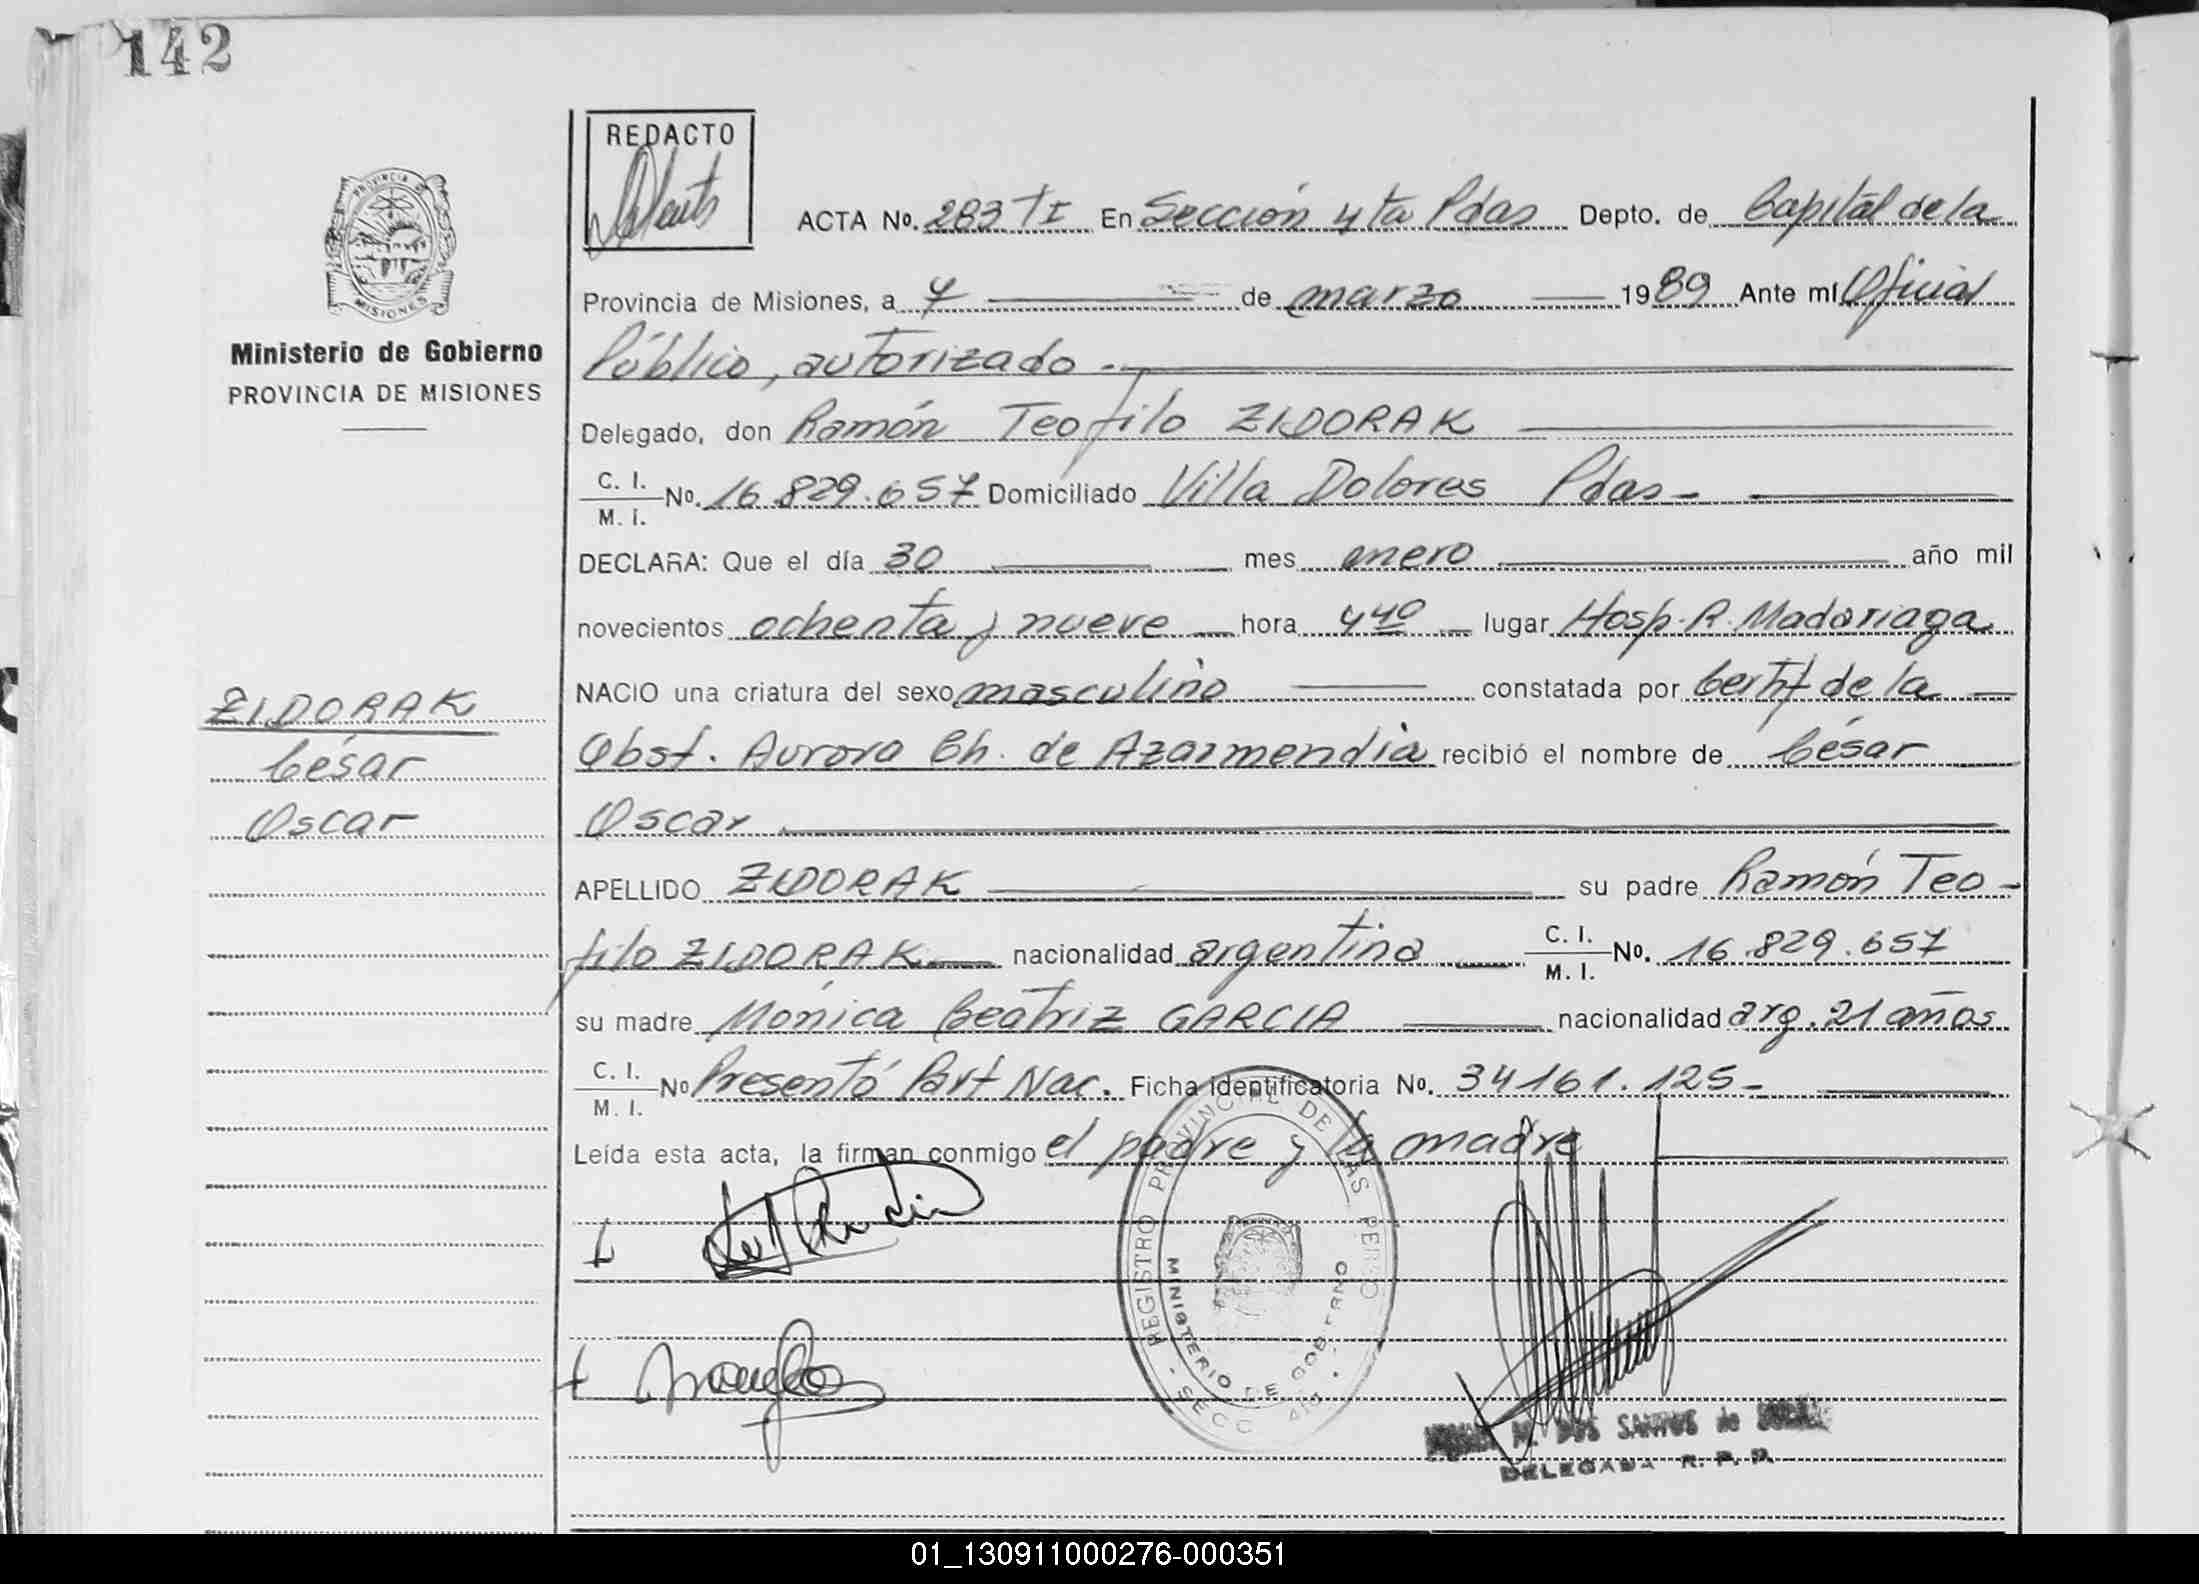 142
REDACTO
PROVINCIA DE
MISIONES
Ministerio de Gobierno
PROVINCIA DE MISIONES
ACTA No. 283 TI En Sección 4ta Pdas Depto. de Capital de la
Provincia de Misiones, a 7 de marzo 1989 Ante mí Oficial
Público, autorizado.
Delegado, don Ramón Teofilo ZIDORAK
C. I. M. I. No. 16.829.657 Domiciliado Villa Dolores Pdas-
DECLARA: Que el día 30 mes enero año mil
novecientos ochenta y nueve hora 4 40 lugar Hosp. R. Madariaga
NACIO una criatura del sexo masculino constatada por Certif de la
Obst. Aurora Ch. de Azarmendia recibió el nombre de César
Oscar
APELLIDO ZIDORAK su padre Ramón Teo-
filo ZIDORAK nacionalidad argentina C. I. M. I. No. 16.829.657
su madre Mónica Beatriz GARCIA nacionalidad arg. 21 años
C. I. M. I. No Presentó Part Nac. Ficha identificatoria No. 34161.125-
Leída esta acta, la firman conmigo el padre y la madre
ZIDORAK
César
Oscar
REGISTRO PROVINCIAL DE LAS PERSO
MINISTERIO DE GOBIERNO
SECC 4ta
M. DOS SANTOS de
DELEGADA R. P. P.
01_130911000276-000351